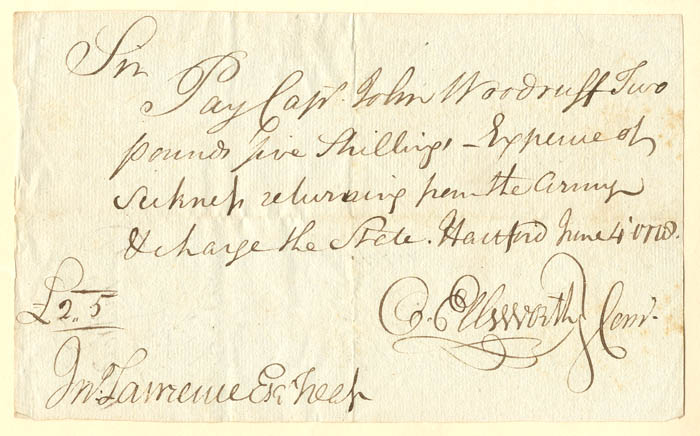 Sir
Pay Capt. John Woodruff Two
pounds five Shillings - Expence of
Sickness returning from the Army
& charge the State. Hartford June 4th
£2.. 5
O. Ellsworth } Com.
Jno. Lawrence Esqr Treasr